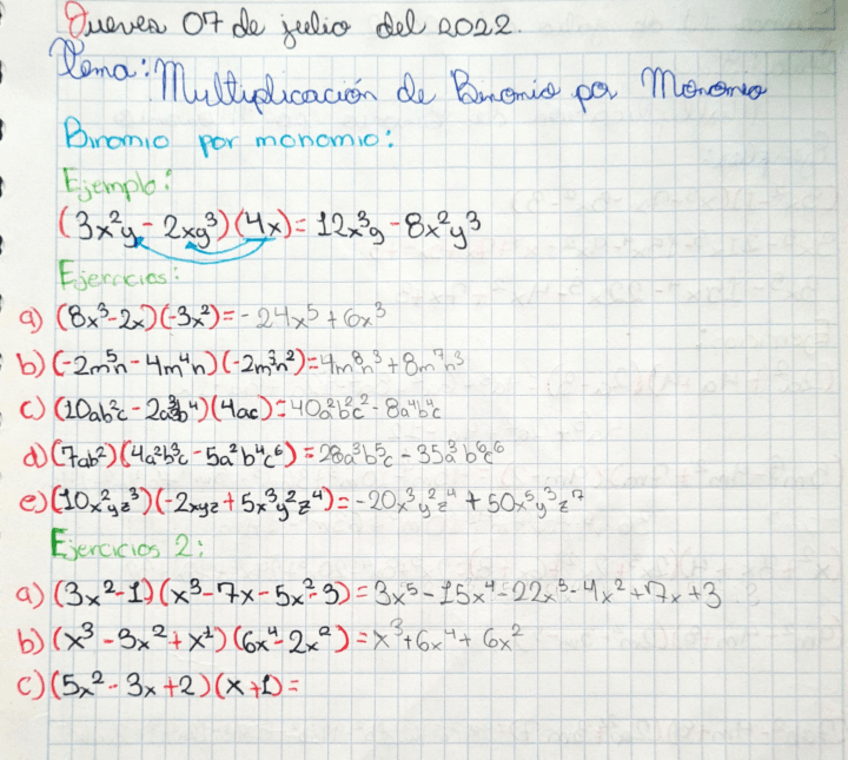 Jueves 07 de julio del 2022.
Tema: Multiplicación de Binomio por Monomio
Binomio por monomio:
Ejemplo:
(3x²y - 2xy³)(4x) = 12x³y - 8x²y³
Ejercicios:
a) (8x³-2x)(-3x²) = -24x⁵ + 6x³
b) (-2m⁵n - 4m⁴n)(-2m³n²) = 4m⁸n³ + 8m⁷n³
c) (10ab²c - 2a³b⁴)(4ac) = 40a²b²c² - 8a⁴b⁴c
d) (7ab²)(4a²b³c - 5a²b⁴c⁶) = 28a³b⁵c - 35a³b⁶c⁶
e) (10x²yz³)(-2xyz + 5x³y²z⁴) = -20x³y²z⁴ + 50x⁵y³z⁷
Ejercicios 2:
a) (3x²-1)(x³-7x-5x²-3) = 3x⁵ - 15x⁴ - 22x³ - 4x² + 7x + 3
b) (x³ - 3x² + x¹)(6x⁴ - 2x²) = x³ + 6x⁴ + 6x²
c) (5x² - 3x + 2)(x + 1) =